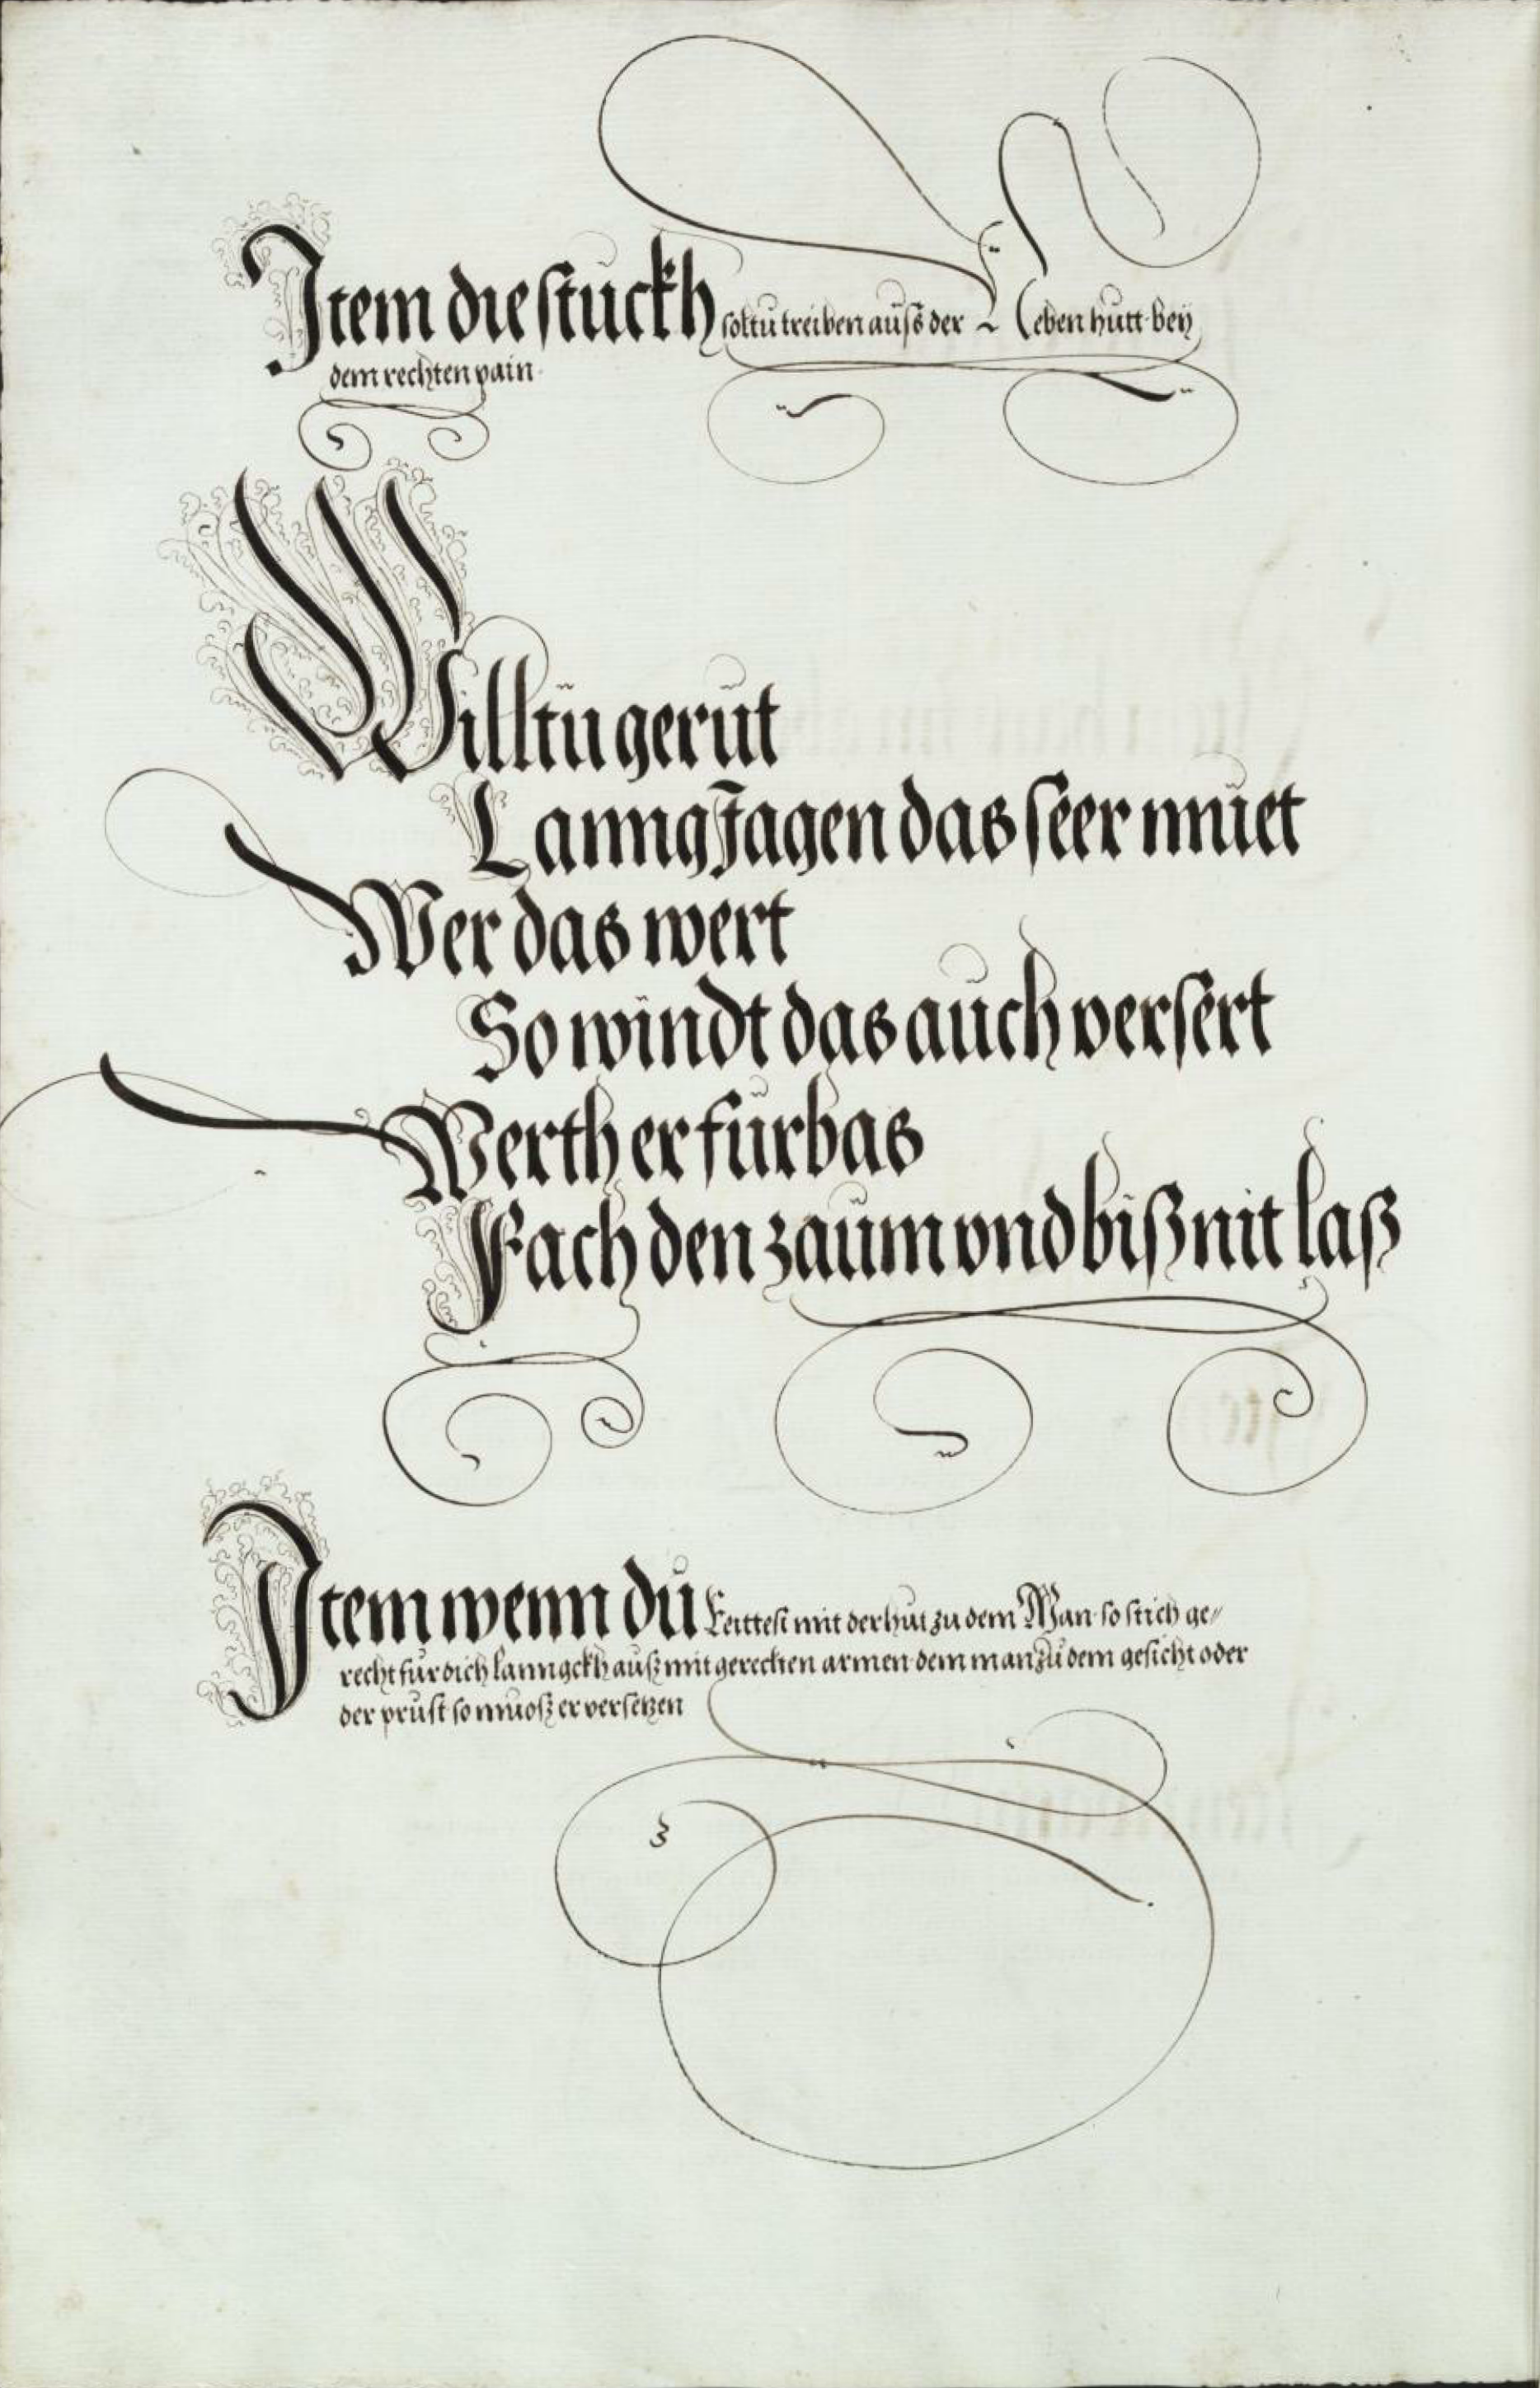 Item die stückh soltu treiben auſs der Neben hutt bey
dem rechten pain
Willtu gerüt
Lanng Jagen das ſeer müet
Wer das wert
So windt das auch verſert
Werth er fürbas
Fach den zaum vnd biß nit laß
Item wenn dü Reittest mit der hut zu dem Man ſo ſtich ge//
recht für dich lanngckh auß mit gereckten armen dem man zu dem geſicht oder
der pruſt ſo muoß er verſetzen